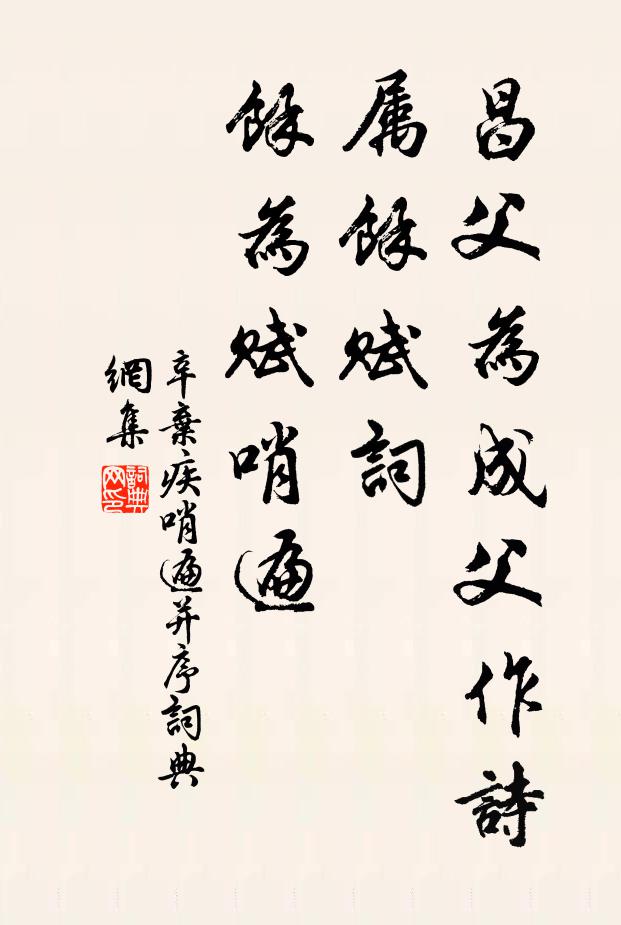 昌父為成父作詩
属餘賦詞
餘為賦哨遍
辛棄疾哨遍并序詞典
網集
詞典网印